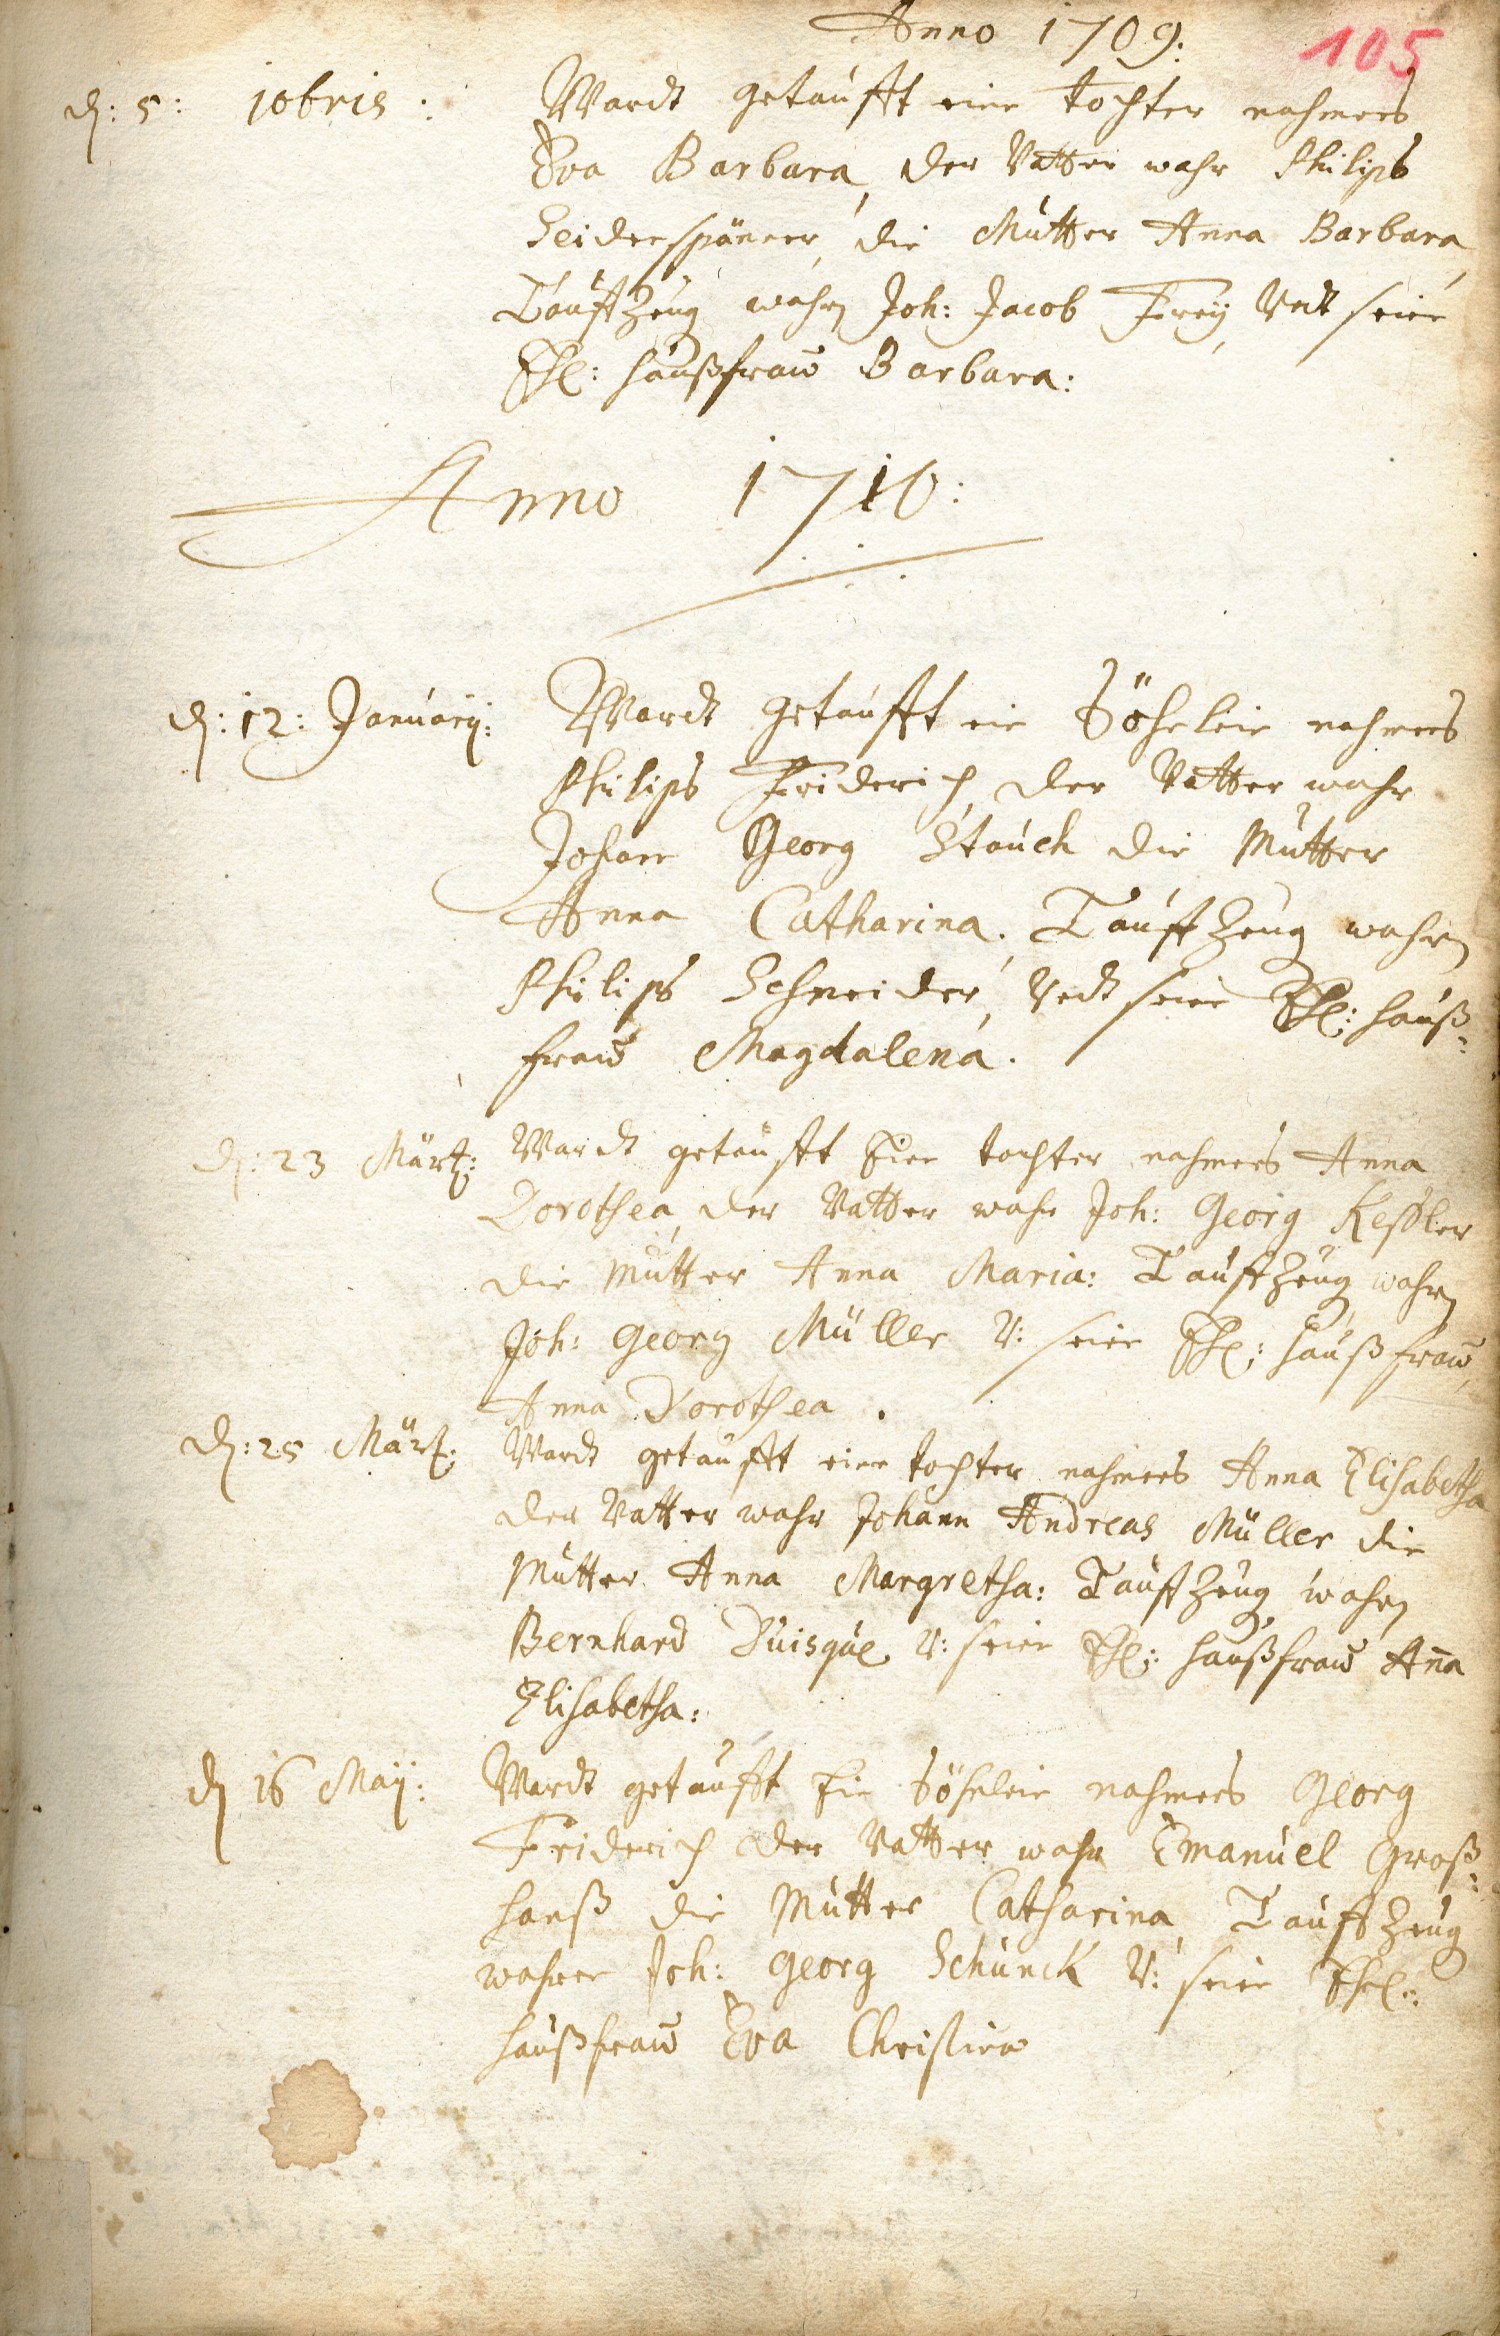 Anno 1709.
105
d: 5: 10bris: Wardt getaufft eine tochter nahmens
Eva Barbara, der Vatter wahr Philips
Seidenspäner, die Mutter Anna Barbara,
Tauffzeug wahren Joh: Jacob Frey, Undt seine
Ehl: haußfraw Barbara:
Anno 1710:
d: 12: January: Wardt getaufft ein Söhnlein nahmens
Philips Friderich, der Vatter wahr
Johann Georg Stauch die Mutter
Anna Catharina. Tauffzeug wahren
Philips Schneider, Undt seine Ehl: hauß-
fraw Magdalena.
d: 23 Märtz: Wardt getaufft Eine tochter nahmens Anna
Dorothea, der Vatter wahr Joh: Georg Keßler
die Mutter Anna Maria: Tauffzeug wahren
Joh: Georg Müller V: seine Ehl: haußfraw,
Anna Dorothea.
d: 25 Märtz: Wardt getaufft eine tochter nahmens Anna Elisabetha
der Vatter wahr Johann Andreas Müller die
Mutter Anna Margretha: Tauffzeug wahren
Bernhard Duisque V: seine Ehl: haußfraw Aña
Elisabetha:
d 16 Maij: Wardt getaufft Ein Söhnlein nahmens Georg
Friderich der Vatter wahr Emanuel Groß-
hanß die Mutter Catharina, Tauffzeug
wahren Joh: Georg Schunck V: seine Ehl:
haußfraw Eva Christina